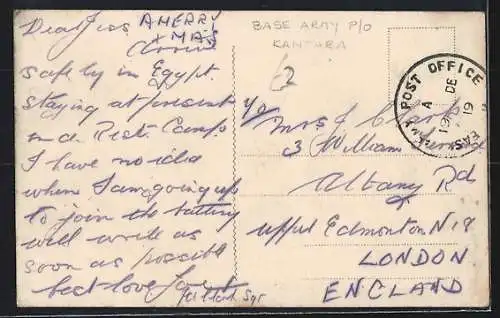 Dear Jess A MERRY
XMAS
Arrived
safely in Egypt.
staying at present
in a Rest Camp
I have no idea
when I am going up
to join the battery
will write as
soon as possible
best love from
BASE ARMY P/O
KANTARA
2
Mrs J Clark
3 William
Albany Rd
upper Edmonton N.18
LONDON
ENGLAND
POST OFFICE
A
DE
19